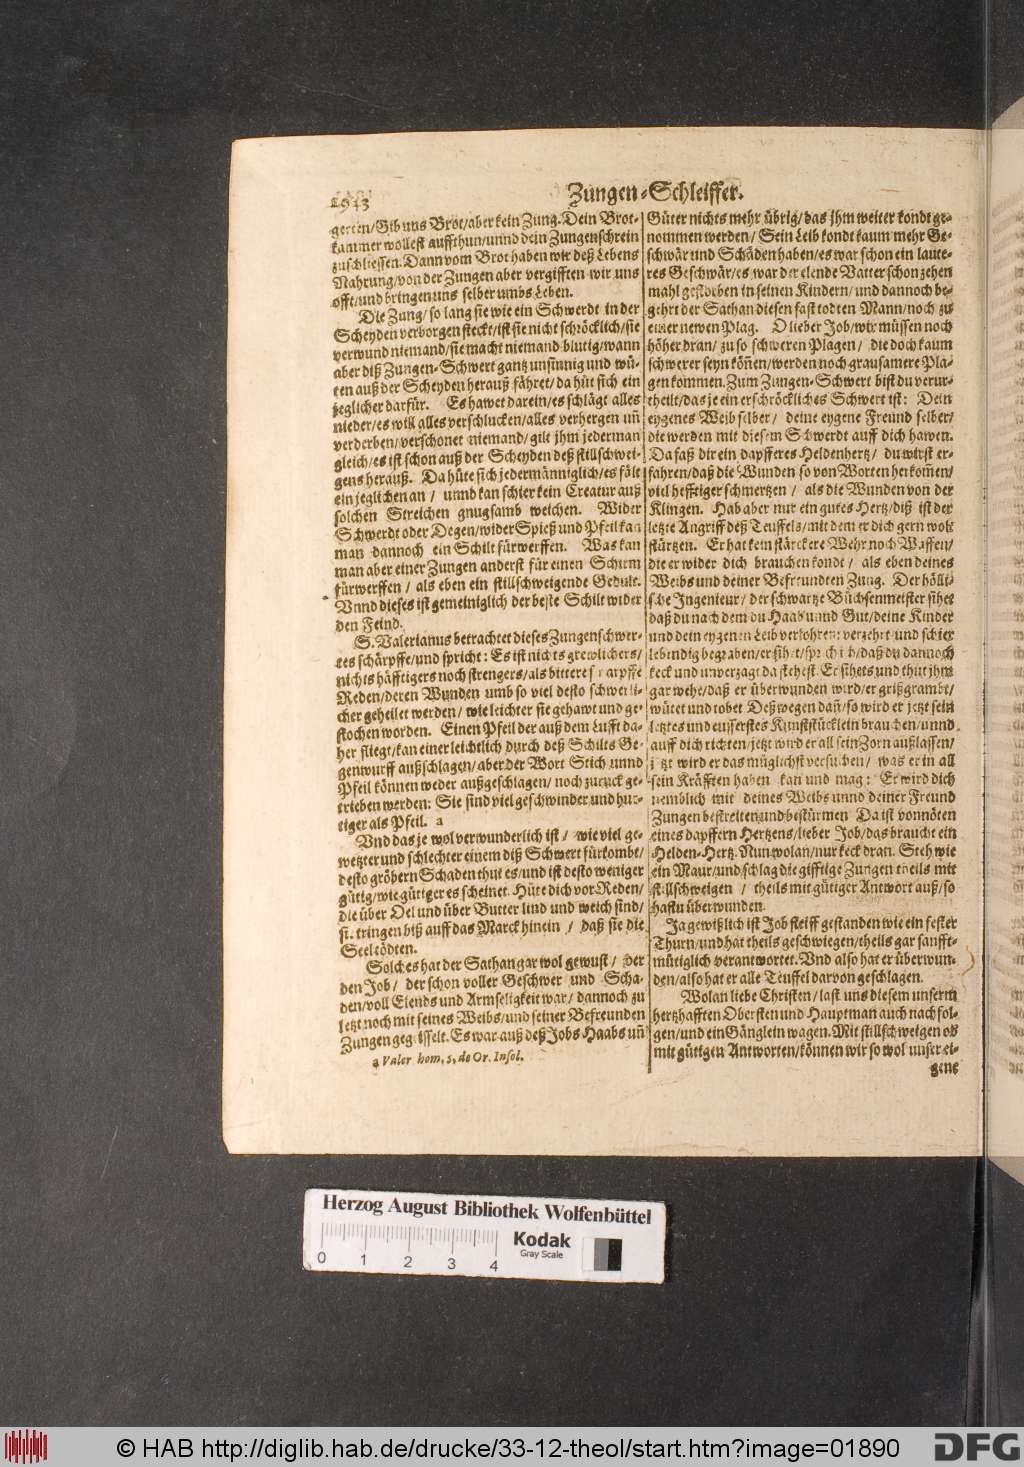 1913
Zungen-Schleiffer.
gerten/Gib uns Brot/aber kein Zung. Dein Brot-
kammer wollest auffthun/unnd dein Zungenschrein
zuschliessen. Dann vom Brot haben wir deß Lebens
Nahrung/von der Zungen aber vergifften wir uns
offt/und bringen uns selber umbs Leben.
Die Zung/so lang sie wie ein Schwerdt in der
Scheyden verborgen steckt/ist sie nicht schröcklich/sie
verwund niemand/sie macht niemand blutig/wann
aber diß Zungen-Schwert gantz unsinnig und wü-
ten auß der Scheyden herauß fähret/da hüt sich ein
jeglicher darfür. Es hawet darein/es schlägt alles
nieder/es will alles verschlucken/alles verhergen uñ
verderben/verschonet niemand/gilt jhm jederman
gleich/es ist schon auß der Scheyden deß stillschwei-
gens herauß. Da hüte sich jedermänniglich/es fält
ein jeglichen an/ unnd kan schier kein Creatur auß
solchen Streichen gnugsamb weichen. Wider
Schwerdt oder Degen/wider Spieß und Pfeil kan
man dannoch ein Schilt fürwerffen. Was kan
man aber einer Zungen anderst für einen Schirm
fürwerffen/ als eben ein stillschweigende Gedult.
Vnnd dieses ist gemeiniglich der beste Schilt wider
den Feind.
S. Valerianus betrachtet dieses Zungenschwer-
tes schärpffe/und spricht: Es ist nichts grewlichers/
nichts häfftigers noch strengers/als bittere scharpffe
Reden/deren Wunden umb so viel desto schwerli-
cher geheilet werden/ wie leichter sie gehawt und ge-
stochen worden. Einen Pfeil der auß dem Lufft da-
her fliegt/kan einer leichtlich durch deß Schilts Ge-
genwurff außschlagen/aber der Wort Stich unnd
Pfeil können weder außgeschlagen/noch zuruck ge-
trieben werden: Sie sind viel geschwinder und hur-
tiger als Pfeil. a
Vnd das je wol verwunderlich ist/ wie viel ge-
wetzter und schlechter einem diß Schwert fürkombt/
desto gröbern Schaden thut es/und ist desto weniger
gütig/wie gütiger es scheinet. Hüte dich vor Reden/
die über Oel und über Butter lind und weich sind/
sie tringen biß auff das Marck hinein/ daß sie die
Seel tödten.
Solches hat der Sathan gar wol gewust/ der
den Job/ der schon voller Geschwer und Scha-
den/voll Elends und Armseligkeit war/ dannoch zu
letzt noch mit seines Weibs/und seiner Befreunden
Zungen gegeisselt. Es war auß deß Jobs Haabs uñ
a Valer hom. 5. de Or. Insol.
Güter nichts mehr übrig/das jhm weiter kondt ge-
nommen werden/ Sein Leib kondt kaum mehr Ge-
schwär und Schäden haben/es war schon ein laute-
res Geschwär/es war der elende Vatter schon zehen
mahl gestorben in seinen Kindern/und dannoch be-
gehrt der Sathan diesen fast todten Mann/noch zu
einer newen Plag. O lieber Job/wir müssen noch
höher dran/ zu so schweren Plagen/ die doch kaum
schwerer seyn köñen/werden noch grausamere Pla-
gen kommen. Zum Zungen-Schwert bist du verur-
theilt/das je ein erschröckliches Schwert ist: Dein
eygenes Weib selber/ deine eygene Freund selber/
die werden mit diesem Schwerdt auff dich hawen.
Da faß dir ein dapfferes Heldenhertz/ du wirst er-
fahren/daß die Wunden so von Worten herkom̃en/
viel hefftiger schmertzen/ als die Wunden von der
Klingen. Hab aber nur ein gutes Hertz/diß ist der
letzte Angriff deß Teuffels/mit dem er dich gern wolt
stürtzen. Er hat kein stärckere Wehr noch Waffen/
die er wider dich brauchen kondt/ als eben deines
Weibs und deiner Befreundten Zung. Der hölli-
sche Ingenieur/ der schwartze Büchsenmeister sihet
daß du nach dem du Haab unnd Gut/deine Kinder
und dein eygenen Leib verlohren: verzehrt und schier
lebendig begraben/er sihet/sprich ich/daß du dannoch
keck und unverzagt da stehest. Er sihets und thut jhm
gar wehe/daß er überwunden wird/er grißgrambt/
wütet und tobet Deßwegen dañ/so wird er jetzt sein
letztes und eusserstes Kunststücklein brauchen/unnd
auff dich richten/jetzt wird er all sein Zorn außlassen/
jetzt wird er das müglichst versuchen/ was er in all
sein Kräfften haben kan und mag: Er wird dich
nemblich mit deines Weibs unnd deiner Freund
Zungen bestreiten und bestürmen Da ist vonnöten
eines dapffern Hertzens/lieber Job/das braucht ein
Helden-Hertz. Nun wolan/nur keck dran. Steh wie
ein Maur/und schlag die gifftige Zungen theils mit
stillschweigen/ theils mit gütiger Antwort auß/so
hastu überwunden.
Ja gewißlich ist Job steiff gestanden wie ein fester
Thurn/und hat theils geschwiegen/theils gar sanfft-
mütiglich verantwortet. Vnd also hat er überwun-
den/also hat er alle Teuffel darvon geschlagen.
Wolan liebe Christen/last uns diesem unserm
hertzhafften Obersten und Hauptman auch nachfol-
gen/und ein Gänglein wagen. Mit stillschweigen od
mit gütigen Antworten/können wir so wol unser ei-
gene
Herzog August Bibliothek Wolfenbüttel
0 1 2 3 4
Kodak
Gray Scale
© HAB http://diglib.hab.de/drucke/33-12-theol/start.htm?image=01890
DFG